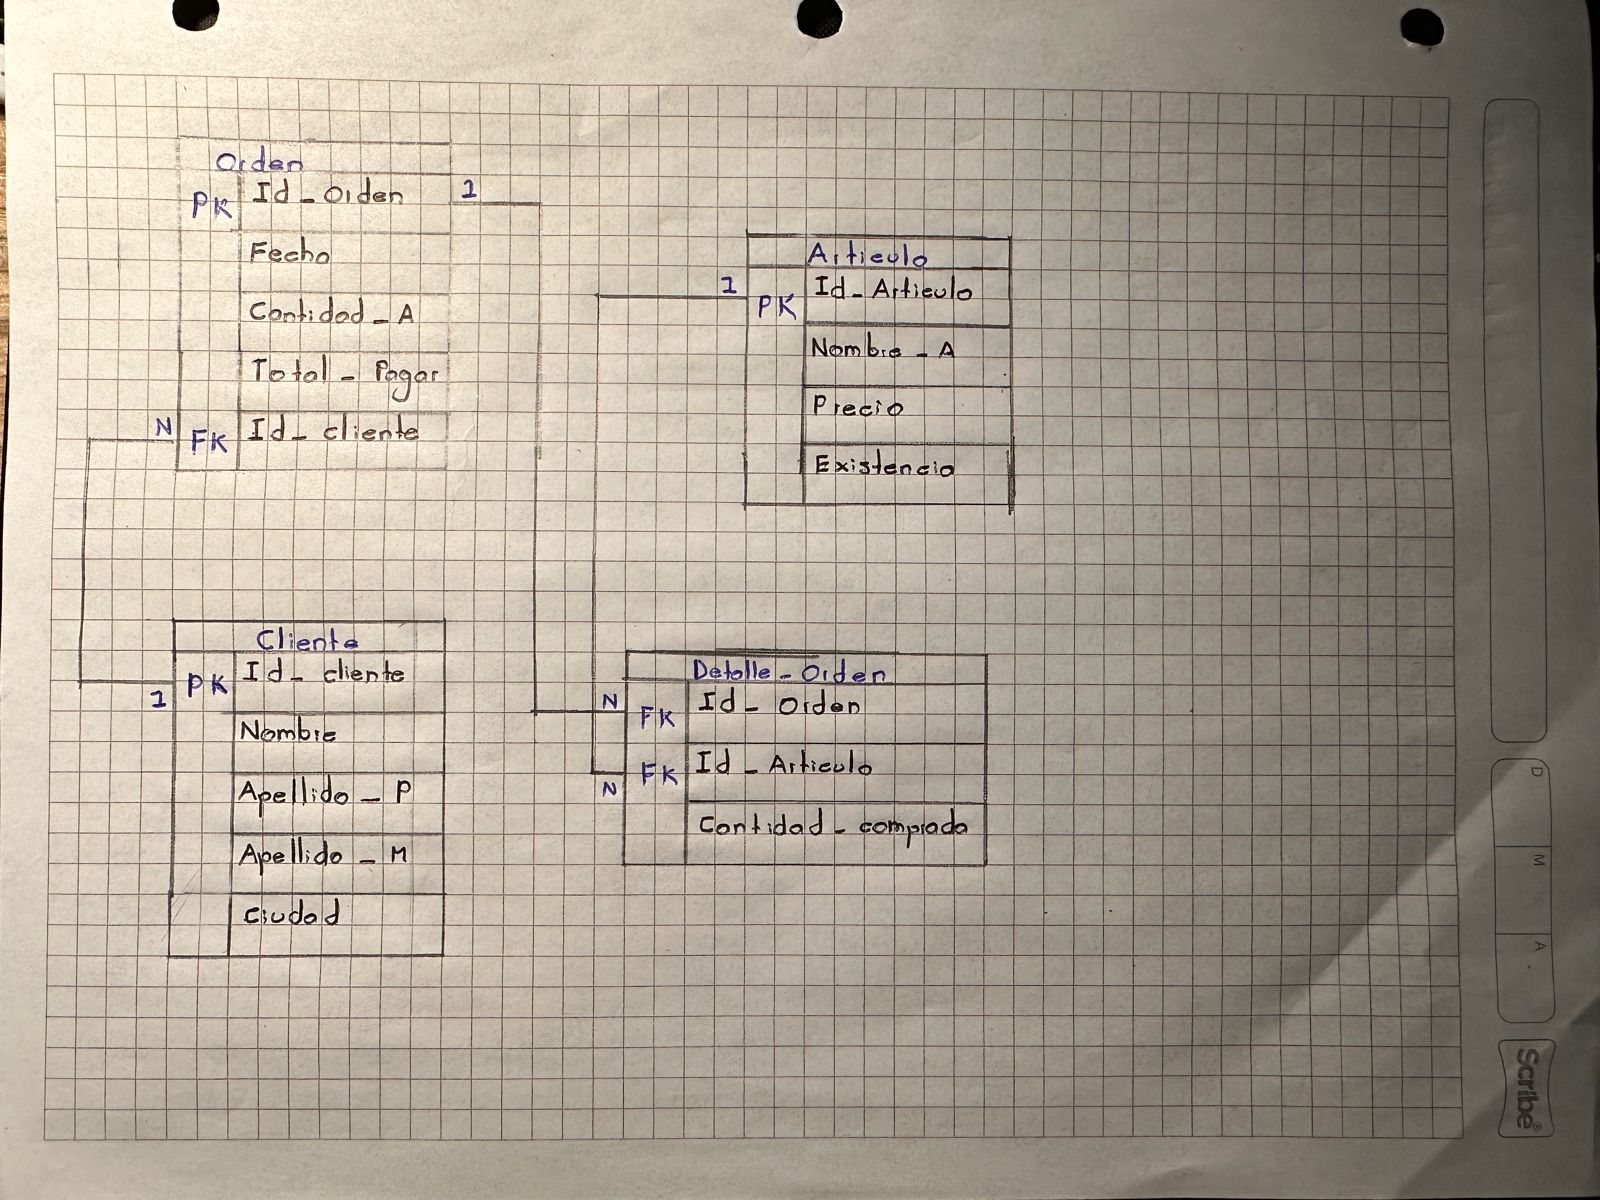 Orden
PK Id_Orden 1
Fecha
Cantidad_A
Total_Pagar
N FK Id_cliente
Articulo
1 PK Id_Articulo
Nombre_A
Precio
Existencia
Cliente
1 PK Id_cliente
Nombre
Apellido_P
Apellido_M
Ciudad
Detalle_Orden
N FK Id_Orden
N FK Id_Articulo
Cantidad_comprada
D
M
A
Scribe®